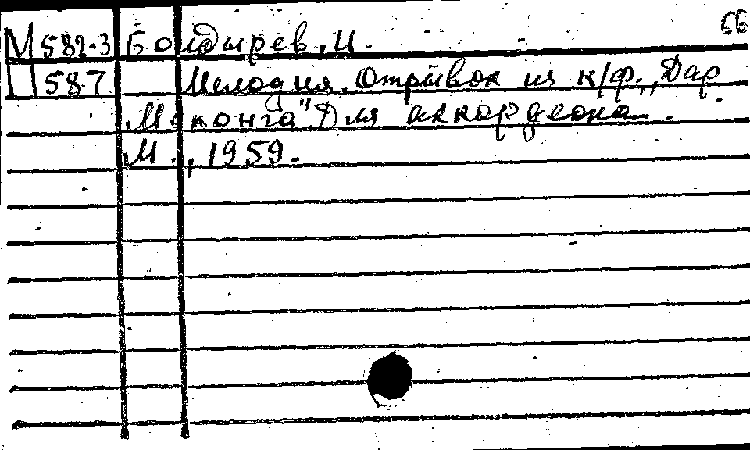 М 582-3 Болдырев, И. 66
П 587 Мелодия. Отрывок из к/ф „Дар
Меконга" Для аккордеона.
М., 1959.